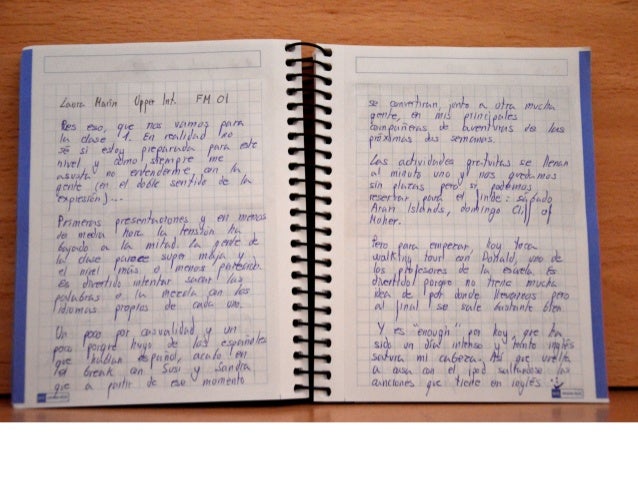 Laura Marin Upper Int. FM 01
Pues eso, que nos vamos para
la clase 1. En realidad no
sé si estoy preparada para este
nivel y como siempre me
asusta no entenderme con la
gente (en el doble sentido de la
expresión)...
Primeras presentaciones y en menos
de media hora la tensión ha
bajado a la mitad. La gente de
la clase parece super maja y
el nivel más o menos parecido.
Es divertido intentar sacar las
palabras o la mezcla con los
idiomas propios de cada uno.
Un poco por casualidad y un
poco porque huyo de los españoles
que hablan español, acabo en
el break con Susi y Sandra
que a partir de ese momento
se convertiran, junto a otra mucha
gente, en mis principales
compañeras de aventuras de las
próximas dos semanas.
Las actividades gratuitas se llenan
al minuto uno y nos quedamos
sin plazas pero si podemos
reservar para el finde: sábado
Aran Islands, domingo Cliff of
Moher.
Pero para empezar, hoy toca
walking tour con Donald, uno de
los profesores de la escuela. Es
divertido porque no tiene mucha
idea de por donde llevarnos pero
al final se sale bastante bien
Y es "enough" por hoy, que ha
sido un día intenso y tanto inglés
satura mi cabeza. Así que vuelta
a casa con el ipod saltandose las
canciones que tiene en inglés